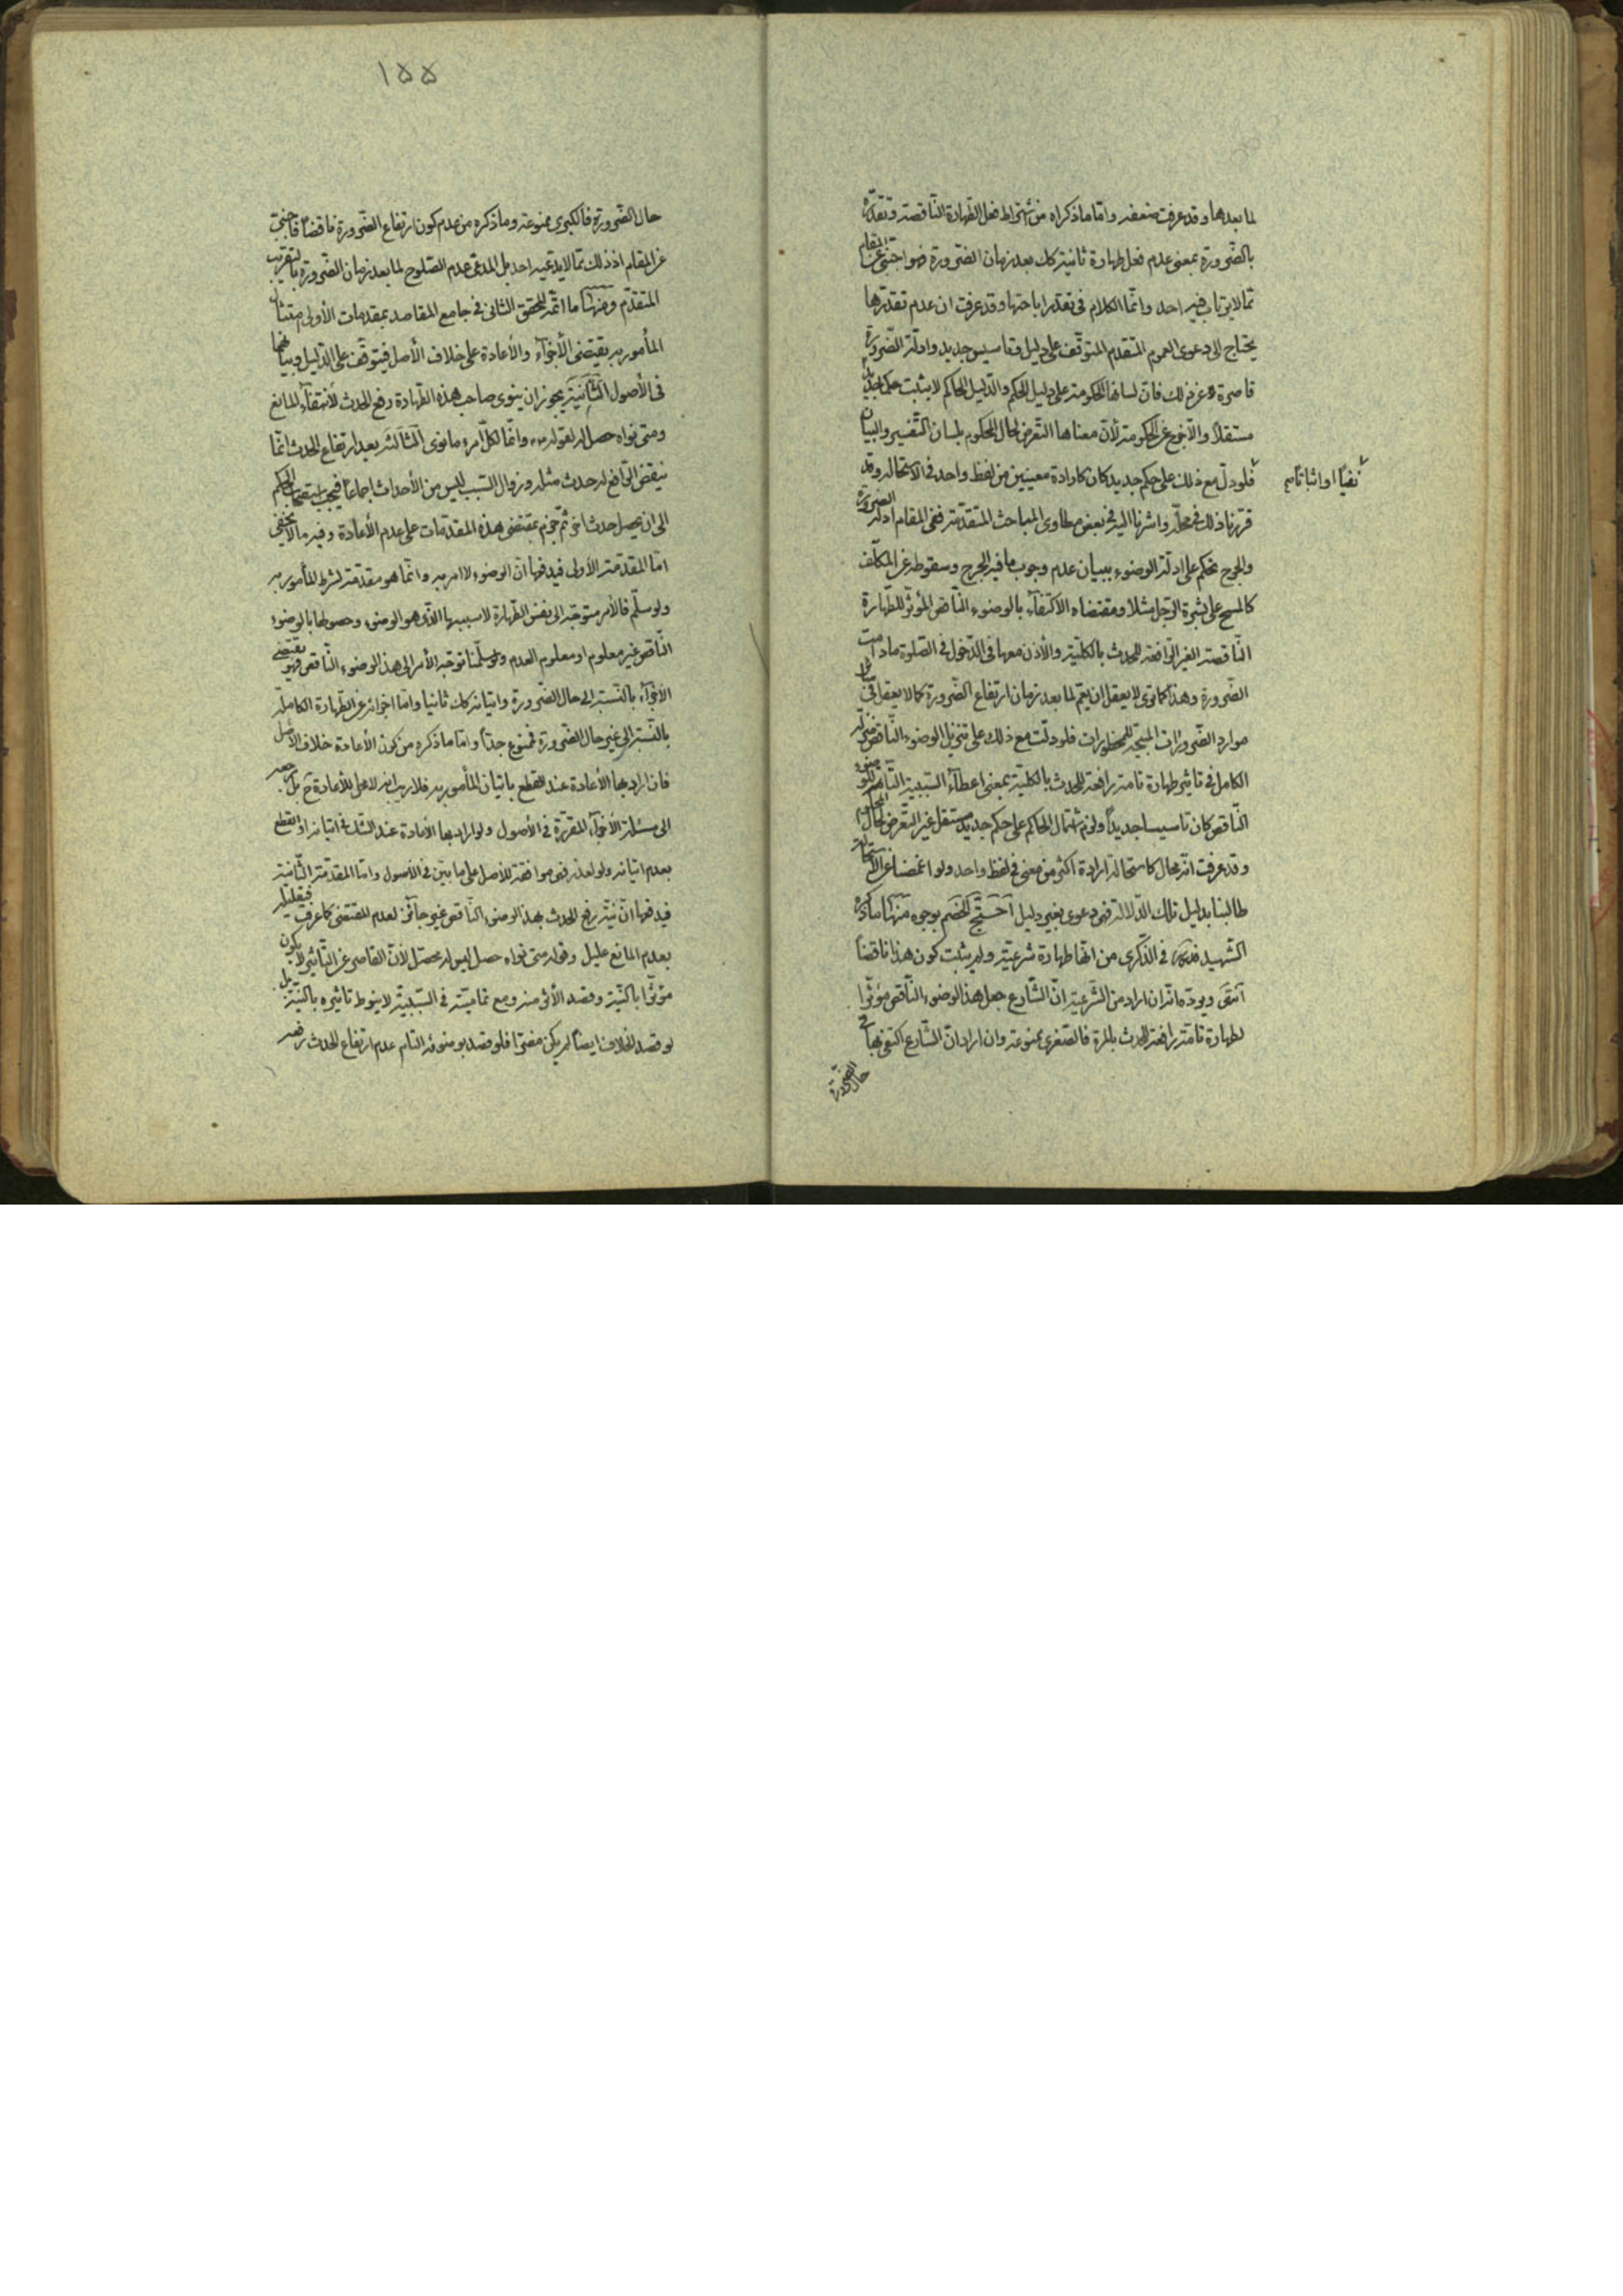 لما بعدها وقد عرفت ضعفه وامّا ما ذكراه من اشتراط فعل الطّهارة النّاقصة وتقدّره
بالضّرورة بمعنى عدم فعل طهارة ثانية كك بعد زمان الضّرورة فهو اجنبى عن المقام
ممّا لا يرتاب فيه احد وانّما الكلام فى تقدّر اباحتها وقد عرفت ان عدم تقدّرها
يحتاج الى دعوى العموم المتقدم المتوقّف على دليل وتأسيس جديد وادلّة الضّرورة
قاصرة عن ذلك فانّ لسانها الحكومة على دليل الحكم والدّليل الحاكم لا يثبت حكما جديدا
مستقلاً والّا خرج عن الحكومة لأنّ معناها التّعرض لحال المحكوم بلسان التّفسير والبيان
نفياً او اثباتاً صح
فلو دلّ مع ذلك على حكم جديد كان كارادة معنيين من لفظ واحد فى الاستحالة وقد
قرّرنا ذلك فى محلّه واشرنا اليه فى بعض مطاوى المباحث المتقدّمة ففى المقام ادلّة الضرورة
والحرج تحكم على ادلّة الوضوء ببيان عدم وجوب ما فيه الحرج وسقوطه عن المكلّف
كالمسح على بشرة الرّجل مثلا ومقتضاه الاكتفاء بالوضوء النّاقص المؤثّر للطّهارة
النّاقصة الغير الرّافعة للحدث بالكليّة والأذن معها فى الدّخول فى الصّلوة ما دامت
الضّرورة وهذا كما ترى لا يعقل ان يعمّ لما بعد زمان ارتفاع الضّرورة كما لا يعقل فى
موارد الضّرورات المبيحة للمحظورات فلو دلّت مع ذلك على تنزيل الوضوء النّاقص منزلة
الكامل فى تأثير طهارة تامة رافعة للحدث بالكليّة بمعنى اعطاء السّببيّة التّامة للوضوء
النّاقص كان تأسيسا جديداً ولزم اشتمال الحاكم على حكم جديد مستقل غير التّعرض لحال المحكوم
وقد عرفت انّه محال كاستحالة ارادة اكثر من معنى فى لفظ واحد ولو اغمضنا عن الاستحالة
طالبنا بدليل تلك الدّلالة فهى دعوى بغير دليل احتجّ الخصم بوجوه منها ما ذكره
الشّهيد قدّه فى الذّكرى من انّها طهارة شرعيّة ولم يثبت كون هذا ناقضاً
انتهى ويردّه انّه ان اراد من الشّرعيّة انّ الشّارع جعل هذا الوضوء النّاقص مؤثّرا
لطهارة تامّة رافعة للحدث بالمرّة فالصّغرى ممنوعة وان اراد انّ الشّارع اكتفى بها فى
حال الضّرورة
١۵۵
حال الضّرورة فالكبرى ممنوعة وما ذكره من عدم كون ارتفاع الضّرورة ناقضاً فاجنبىّ
عن المقام اذ ذلك ممّا لا يدّعيه احد بل المدعى عدم الصّلوح لما بعد زمان الضّرورة بالتقريب
المتقدّم ومنها ما اتمّه المحقّق الثّانى فى جامع المقاصد بمقدمات الأولى امتثال
المأمور به يقتضى الأجزاء والأعادة على خلاف الأصل فيتوقّف على الدّليل وبيانهما
فى الأصول الثّانية يجوز ان ينوى صاحب هذه الطّهارة رفع الحدث لأنتفاء المانع
ومتى نواه حصل له لقوله ص وانّما لكلّ امرء ما نوى الثّالثة بعد ارتفاع الحدث انّما
ينقض الرّافع له حدث مثله وزوال السّبب ليس من الأحداث اجماعاً فيجب استصحاب الحكم
الى ان يحصل حدث اخر ثمّ جزم بمقتضى هذه المقدّمات على عدم الأعادة وفيه ما لا يخفى
امّا المقدّمة الأولى فيدفعها انّ الوضوء لا امر به وانّما هو مقدّمة لشرط المأمور به
ولو سلّم فالأمر متوجّه الى نفس الطّهارة لا سببها الّذى هو الوضوء وحصولها بالوضوء
النّاقص غير معلوم او معلوم العدم ولو سلّمنا توجّه الأمر الى هذا الوضوء النّاقص فهو يقتضى
الأجزاء بالنّسبة الى حال الضّرورة واتيانه كك ثانيا وامّا اجزائه عن الطّهارة الكاملة
بالنّسبة الى غير حال الضّرورة فممنوع جدّاً وامّا ما ذكره من كون الأعادة خلاف الأصل
فان اراد بها الأعادة عند القطع باتيان المأمور به فلا ريب انه لا محل للأعادة ح بل مرجعه
الى مسئلة الأجزاء المقرّرة فى الأصول ولو اراد بها الأعادة عند الشّك فى اتيانه او القطع
بعدم اتيانه ولو لعذر فهى موافقة للأصل على ما بيّن فى الأصول وامّا المقدّمة الثّانية
فيدفعها انّ نيّة رفع الحدث بهذا الوضوء النّاقص غير جائز لعدم المقتضى كما عرفت فتعليله
بعدم المانع عليل وقوله متى نواه حصل ليس له محصّل لأنّ القاصر عن التّأثير لا يكون
مؤثّرا بالنّيّة وقصد الأثر منه ومع تماميّته فى السّببيّة لا ينوط تأثيره بالنّيّة بل
لو قصد الخلاف ايضاً لم يكن مضرّا فلو قصد بوضوئه التام عدم ارتفاع الحدث رفعه